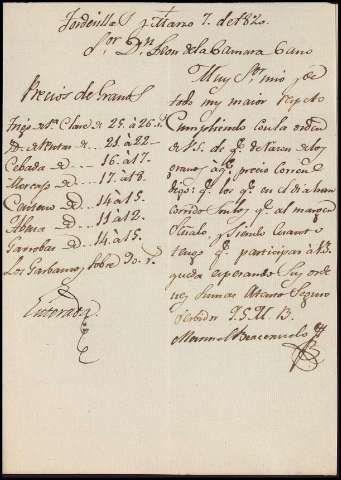 Tordesillas y Marzo 7. de 1820.
Sor. Dn. Leon de la Camara Cano
Precios de Granos
Trigo de 1ª Clase de 25. á 26. rs
Id. de de 21 á 22
Cebada de 16 á 17.
Morcajo de 17. á 18.
Centeno de 14 á 15.
Abena de 11 á 12.
Garrobas de 14. á 15.
Los Garbanzos sobre 90. rs
Enterado
Muy Sr. mio y de
todo my maior respeto
Cumpliendo con la orden
de V.S. de qe. de razon de los
granos á qe. precio corren
digo: qe. los qe. en el dia han
corrido son los qe. al margen
señalo, y siendo cuanto
tengo qe. participar á V.S.
queda esperando sus orde
nes su mas atento Seguro
Servidor Q.S.M.B.
Manuel